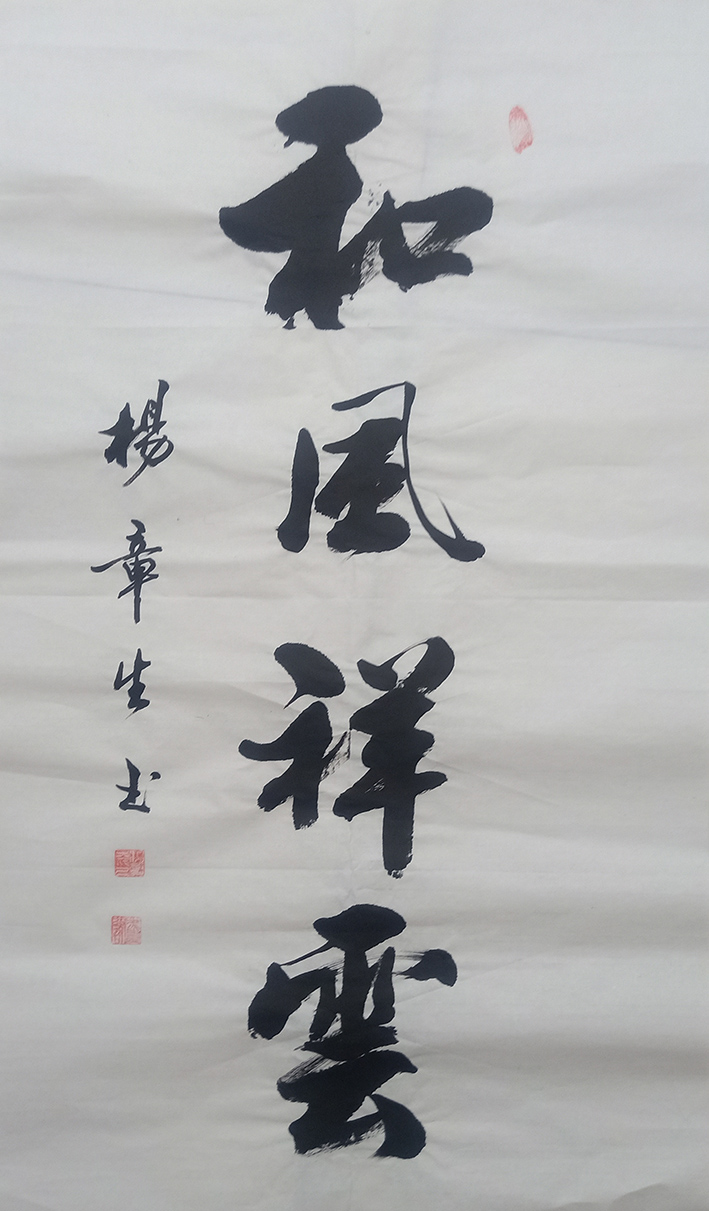 和風祥雲
楊章生書